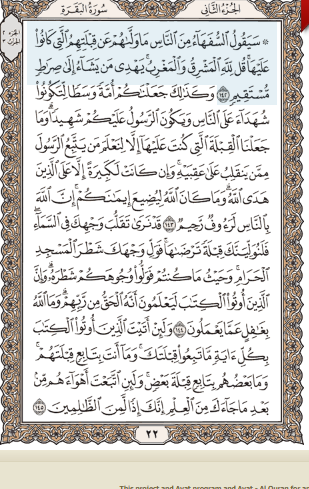 الجزء الثاني
سورة البقرة
۞ سَيَقُولُ ٱلسُّفَهَآءُ مِنَ ٱلنَّاسِ مَا وَلَّىٰهُمْ عَن قِبْلَتِهِمُ ٱلَّتِى كَانُوا۟
عَلَيْهَا ۚ قُل لِّلَّهِ ٱلْمَشْرِقُ وَٱلْمَغْرِبُ ۚ يَهْدِى مَن يَشَآءُ إِلَىٰ صِرَٰطٍ
مُّسْتَقِيمٍ ١٤٢ وَكَذَٰلِكَ جَعَلْنَٰكُمْ أُمَّةً وَسَطًا لِّتَكُونُوا۟
شُهَدَآءَ عَلَى ٱلنَّاسِ وَيَكُونَ ٱلرَّسُولُ عَلَيْكُمْ شَهِيدًا ۗ وَمَا
جَعَلْنَا ٱلْقِبْلَةَ ٱلَّتِى كُنتَ عَلَيْهَآ إِلَّا لِنَعْلَمَ مَن يَتَّبِعُ ٱلرَّسُولَ
مِمَّن يَنقَلِبُ عَلَىٰ عَقِبَيْهِ ۚ وَإِن كَانَتْ لَكَبِيرَةً إِلَّا عَلَى ٱلَّذِينَ
هَدَى ٱللَّهُ ۗ وَمَا كَانَ ٱللَّهُ لِيُضِيعَ إِيمَٰنَكُمْ ۚ إِنَّ ٱللَّهَ
بِٱلنَّاسِ لَرَءُوفٌ رَّحِيمٌ ١٤٣ قَدْ نَرَىٰ تَقَلُّبَ وَجْهِكَ فِى ٱلسَّمَآءِ ۖ
فَلَنُوَلِّيَنَّكَ قِبْلَةً تَرْضَىٰهَا ۚ فَوَلِّ وَجْهَكَ شَطْرَ ٱلْمَسْجِدِ
ٱلْحَرَامِ ۚ وَحَيْثُ مَا كُنتُمْ فَوَلُّوا۟ وُجُوهَكُمْ شَطْرَهُۥ ۗ وَإِنَّ
ٱلَّذِينَ أُوتُوا۟ ٱلْكِتَٰبَ لَيَعْلَمُونَ أَنَّهُ ٱلْحَقُّ مِن رَّبِّهِمْ ۗ وَمَا ٱللَّهُ
بِغَٰفِلٍ عَمَّا يَعْمَلُونَ ١٤٤ وَلَئِنْ أَتَيْتَ ٱلَّذِينَ أُوتُوا۟ ٱلْكِتَٰبَ
بِكُلِّ ءَايَةٍ مَّا تَبِعُوا۟ قِبْلَتَكَ ۚ وَمَآ أَنتَ بِتَابِعٍ قِبْلَتَهُمْ ۚ
وَمَا بَعْضُهُم بِتَابِعٍ قِبْلَةَ بَعْضٍ ۚ وَلَئِنِ ٱتَّبَعْتَ أَهْوَآءَهُم مِّنۢ
بَعْدِ مَا جَآءَكَ مِنَ ٱلْعِلْمِ ۙ إِنَّكَ إِذًا لَّمِنَ ٱلظَّٰلِمِينَ ١٤٥
٢٢
This project and Ayat program and Ayat - Al Quran for